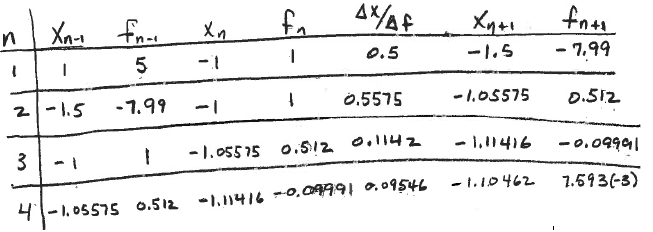 n Xn-1 fn-1 Xn fn Δx/Δf Xn+1 fn+1
1 1 5 -1 1 0.5 -1.5 -7.99
2 -1.5 -7.99 -1 1 0.5575 -1.05575 0.512
3 -1 1 -1.05575 0.512 0.1142 -1.11416 -0.09991
4 -1.05575 0.512 -1.11416 -0.09991 0.09546 -1.10462 7.593(-3)